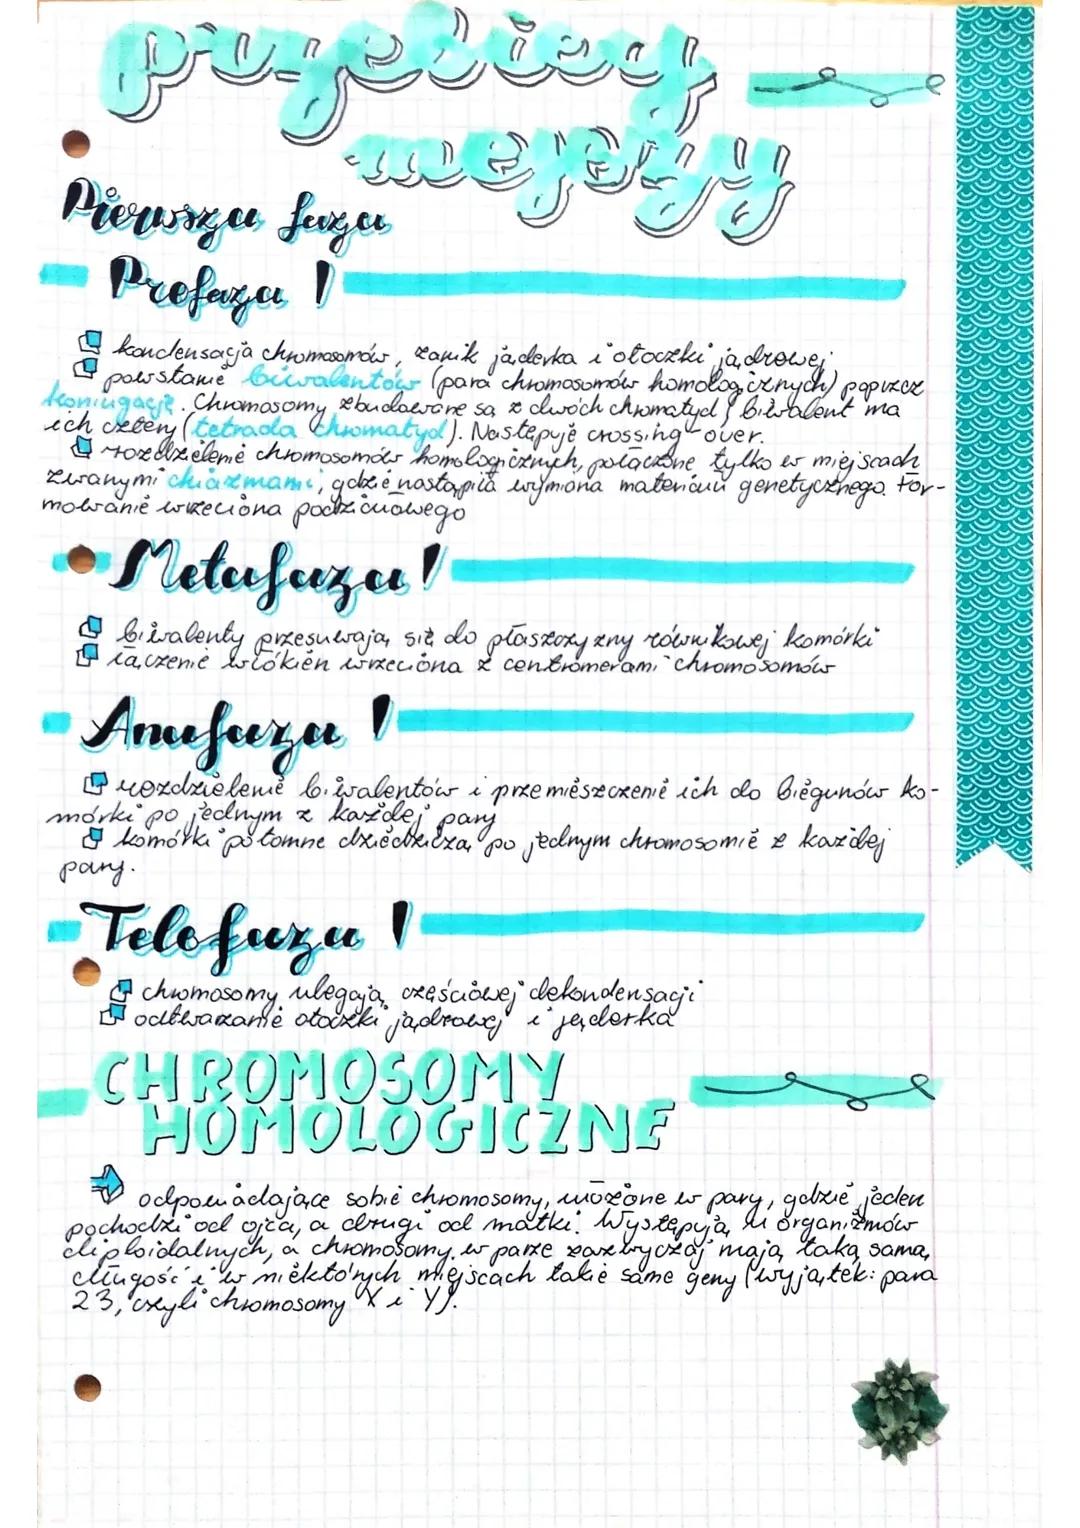 przebieg
mejozy
Pierwsza faza
Profaza I
kondensacja chromosomów, zanik jąderka i otoczki jądrowej
powstanie biwalentów (para chromosomów homologicznych) poprzez
koniugację. Chromosomy zbudowane są z dwóch chromatyd, biwalent ma
ich cztery (tetrada chromatyd). Następuje crossing-over.
rozdzielenie chromosomów homologicznych, połączone tylko w miejscach
zwanymi chiazmami, gdzie nastąpiła wymiana materiału genetycznego. For-
mowanie wrzeciona podziałowego
Metafaza I
biwalenty przesuwają się do płaszczyzny równikowej komórki
łączenie włókien wrzeciona z centromerami chromosomów
Anafaza I
rozdzielenie biwalentów i przemieszczenie ich do biegunów ko-
mórki po jednym z każdej pary
komórki potomne dziedziczą po jednym chromosomie z każdej
pary.
Telofaza I
chromosomy ulegają częściowej dekondensacji
odtwarzanie otoczki jądrowej i jąderka
CHROMOSOMY
HOMOLOGICZNE
odpowiadające sobie chromosomy, ułożone w pary, gdzie jeden
pochodzi od ojca, a drugi od matki. Występują u organizmów
diploidalnych, a chromosomy w parze zazwyczaj mają taką samą
długość i w niektórych miejscach takie same geny (wyjątek: para
23, czyli chromosomy X i Y).